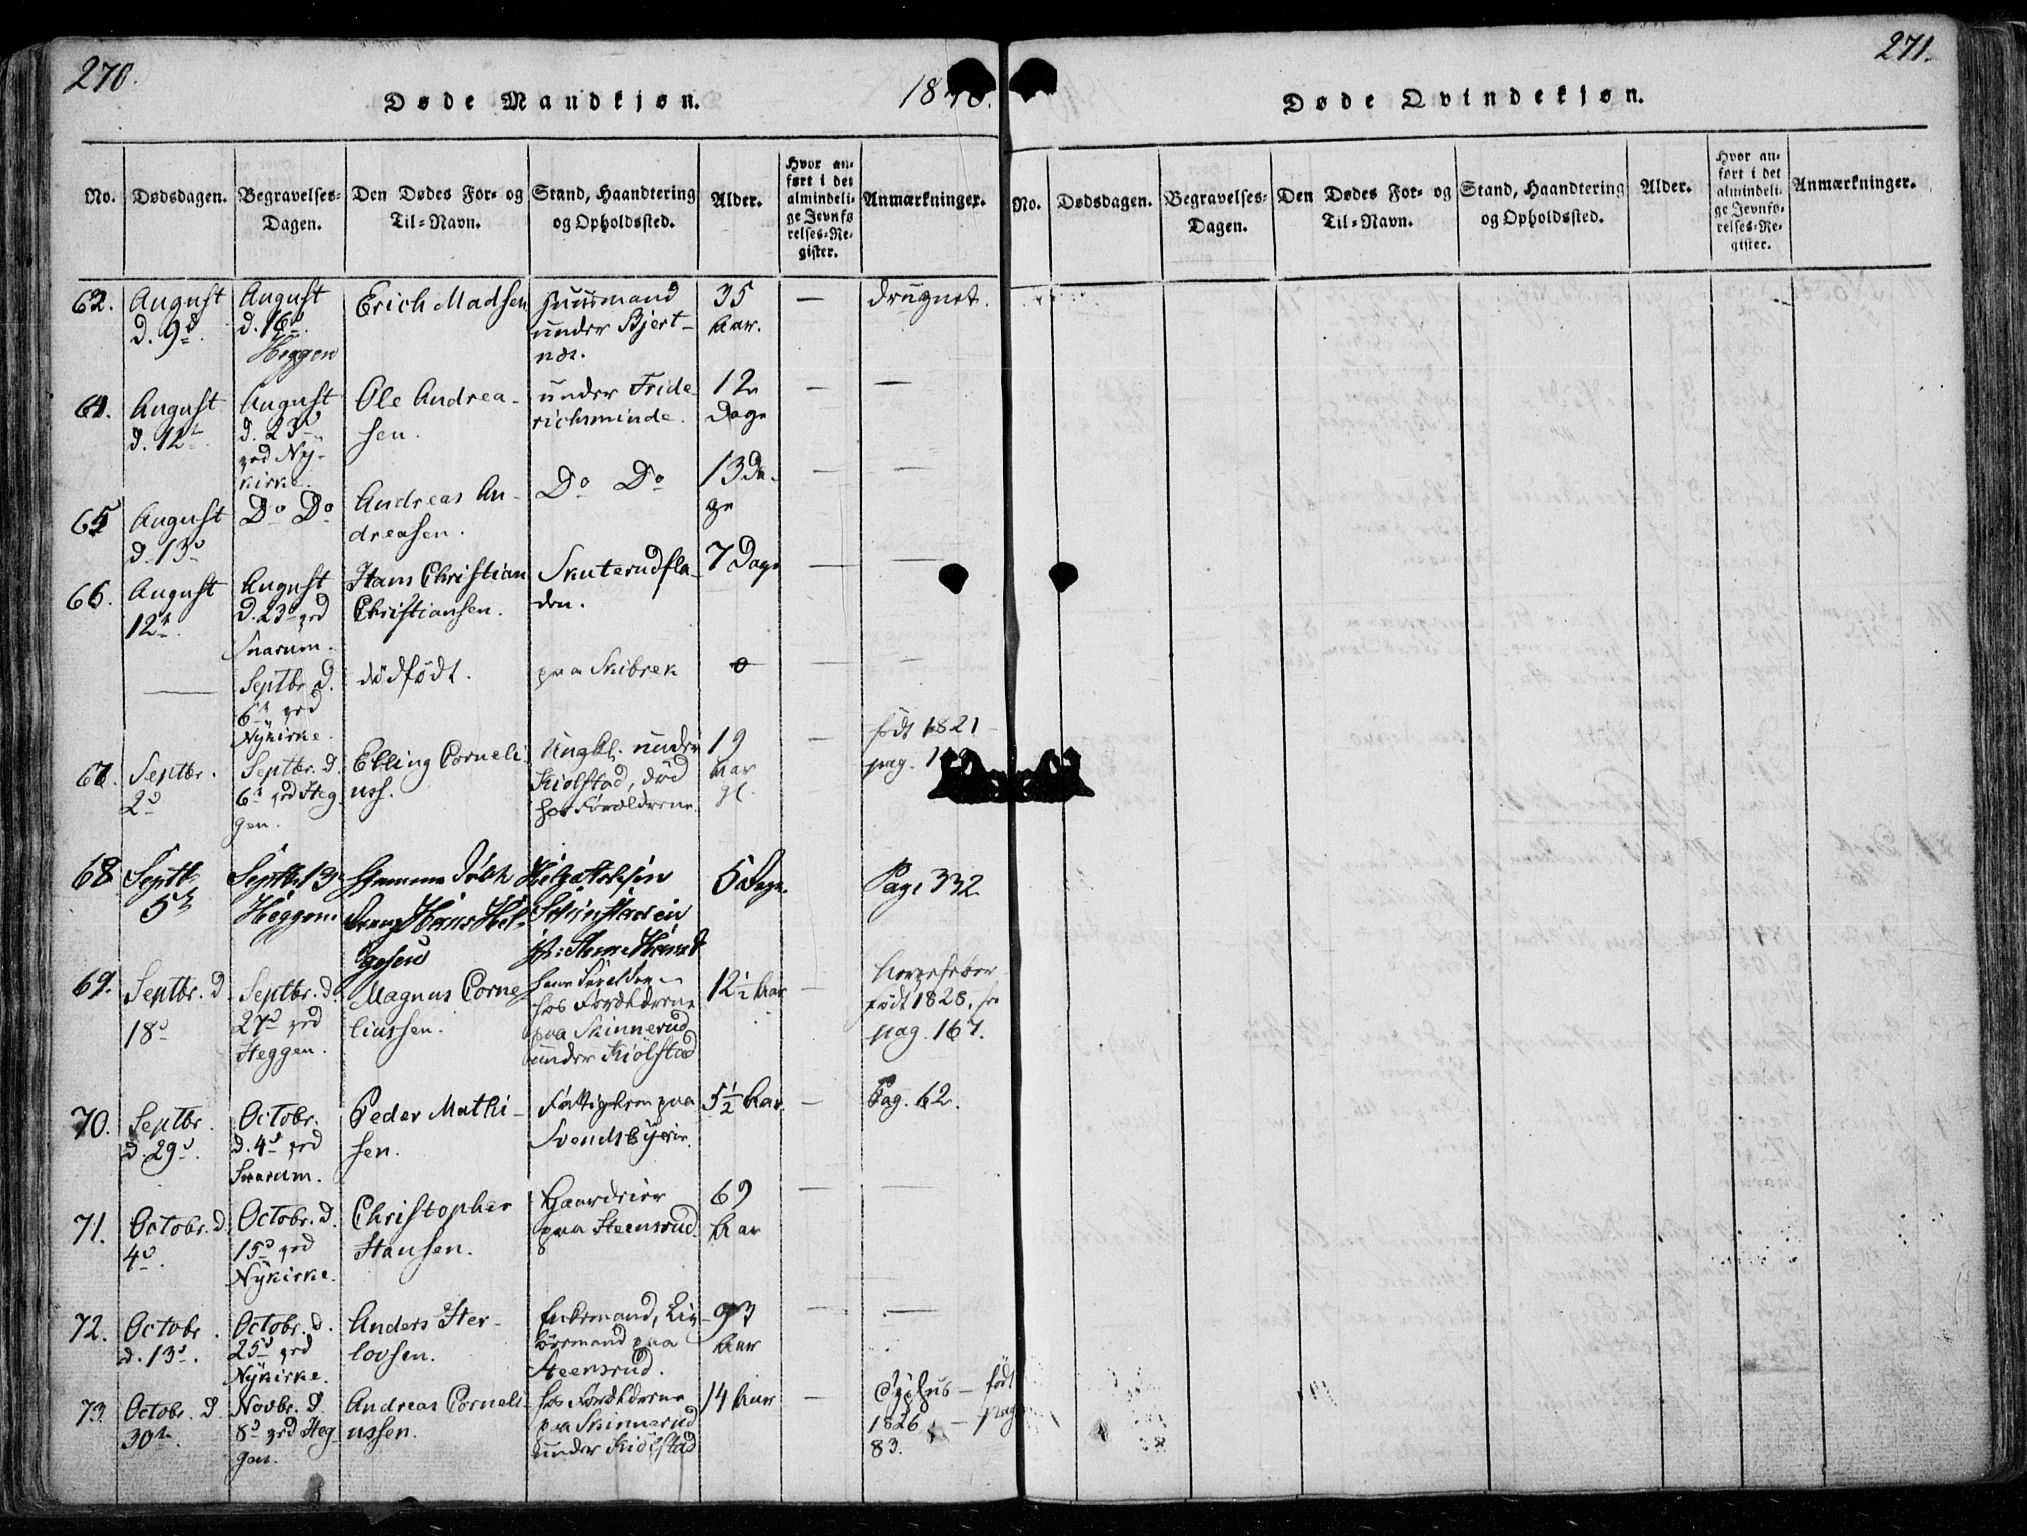 270.
Døde Mandkjøn.
1840.
No.
Dødsdagen.
Begravelses-
Dagen.
Den Dødes For- og
Til-Navn.
Stand, Haandtering
og Opholdssted.
Alder.
Hvor an-
ført i det
almindeli-
ge Jevnfø-
relses-Re-
gister.
Anmærkninger.
62.
August
d. 9d.
August
d. 16d.
Heggen
Erich Madsen
Huusmand
under Bjert-
næs.
35
Aar.
—
Druknet.
64.
August
d. 12t.
August
d. 23d
ved Ny-
kirke.
Ole Andrea-
sen.
under Fride-
richsminde.
12
Dage
—
—
65
August
d. 13d
Do Do
Andreas An-
dreasen.
Do Do
13 Da-
ge
—
—
66.
August
12t.
August
d. 23d ved
Snarum.
Hans Christian
Christiansen.
Skuterudfla-
den.
7 Dage
—
—
—
Septbr d.
6t ved
Nykirke.
dødfødt.
paa Skibrek
0
—
—
67.
Septbr.
2d
Septbr. d.
6t ved Heg-
gen.
Elling Corneli-
uss.
Ungkl. under
Kiølstad, død
hos Forældrene.
19
Aar
gl.
—
født 1821
pag.
68
Septb
5t
Septbr 13d
Heggen
Hans Hel-
gesen
5 Dage.
Page 332
69.
Septbr. d.
18d
Septbr. d.
27d ved
Heggen.
Magnus Corne-
liussen.
hos Forældrene
paa Skinnerud
under Kiølstad
12½ Aar
—
født 1828, se
pag. 167.
70.
Septbr.
d. 29d.
Octobr.
d. 4d ved
Snarum.
Peder Mathi-
sen.
Fattiglem paa
Svendsbyeie.
5½ Aar
—
Pag. 62.
71.
Octobr. d.
4d.
Octobr. d.
15d ved
Nykirke.
Christopher
Hansen.
Gaardeier
paa Steensrud.
69
Aar
—
—
72.
Octobr.
d. 13d.
Octobr. d.
25d ved
Nykirke.
Anders Her-
lovsen.
Enkemand, Liv-
øresmand paa
Steensrud.
93
Aar
—
—
73
Octobr. d.
30t.
Novbr. d.
8d ved Heg-
gen.
Andreas Corneli-
ussen.
hos Forældrene
paa Skinnerud
under Kiølstad
14 Aar
—
Typhus — født
1826 — pag
83.
271.
Døde Qvindekjøn.
No.
Dødsdagen.
Begravelses-
Dagen.
Den Dødes For- og
Til-Navn.
Stand, Haandtering
og Opholdssted.
Alder.
Hvor an-
ført i det
almindeli-
ge Jevnfø-
relses-Re-
gister.
Anmærkninger.